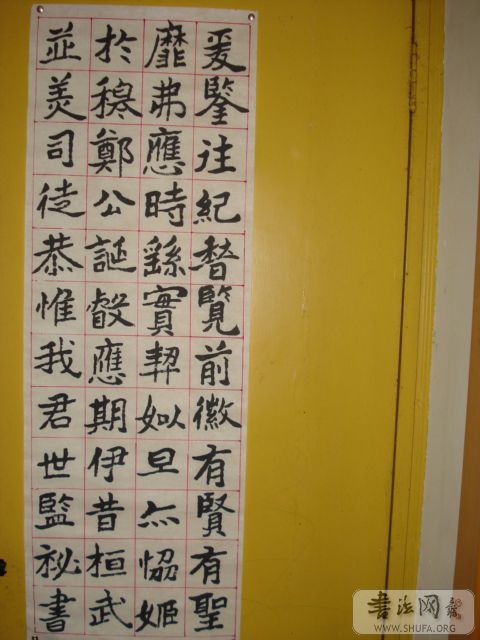 爰鑒往紀稽覽前徽有賢有聖
靡弗應時繇實契姒旦亦協姬
於穆鄭公誕叡應期伊昔桓武
並美司徒恭惟我君世監祕書
書法网
WWW.SHUFA.ORG